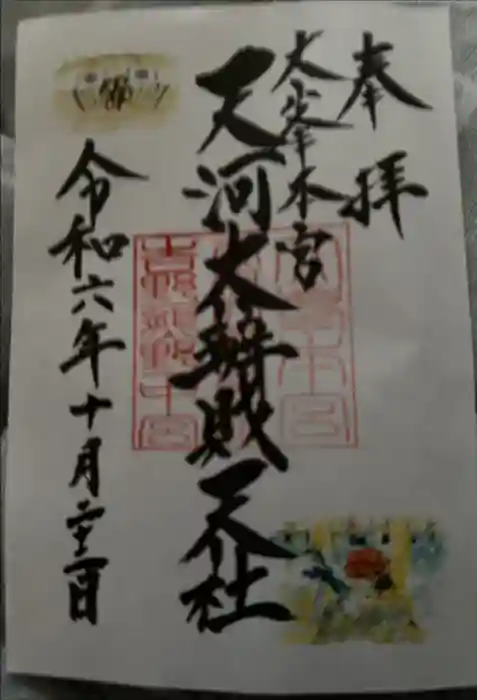 奉拝
大峯本宮
天河大辨財天社
令和六年十月二十二日